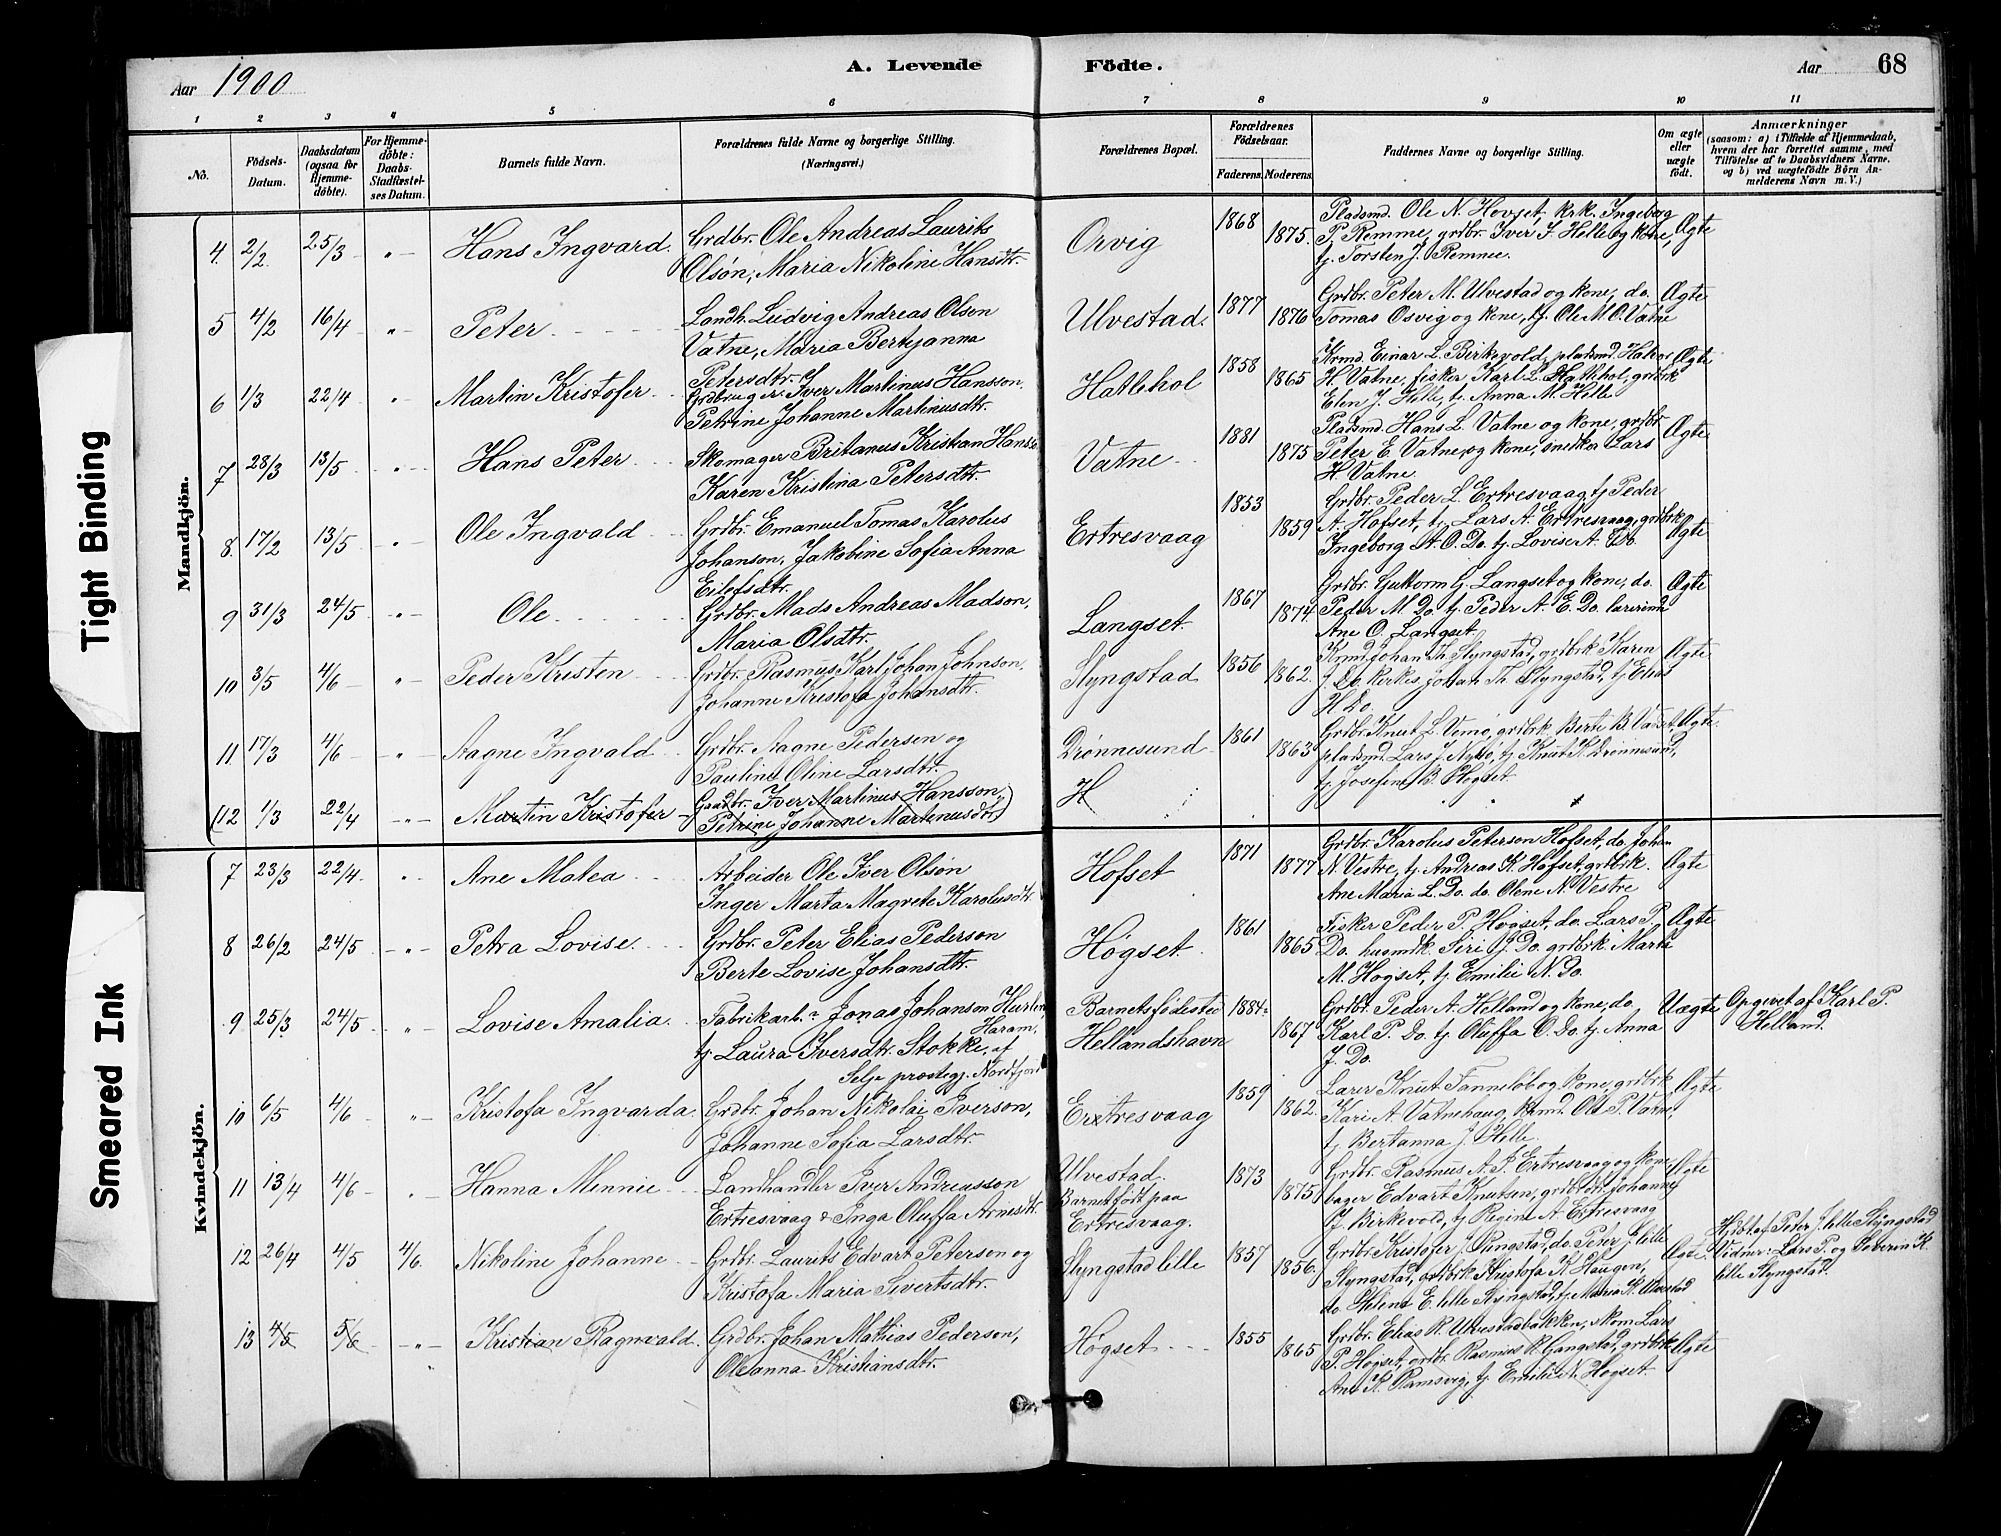 Aar 1900
A. Levende Födte.
Aar 68
1 2 3 4 5 6 7 8 9 10 11
No.
Födsels-Datum.
Daabsdatum (ogsaa for Hjemmedöbte).
For Hjemmedöbte: Daabs-Stadfæstelses Datum.
Barnets fulde Navn.
Forældrenes fulde Navne og borgerlige Stilling.
(Næringsvei.)
Forældrenes Bopæl.
Forældrenes Födselsaar.
Faderens. Moderens.
Faddernes Navne og borgerlige Stilling.
Om ægte eller uægte födt.
Anmærkninger
(saasom: a) i Tilfælde af Hjemmedaab, hvem der har forrettet samme, med Tilföielse af to Daabsvidners Navne, og b) ved uægtefödte Börn Anmelderens Navn m. V.)
Mandkjön.
4. 2/2 25/3 - „ - Hans Ingvard. Grdbr. Ole Andreas Laurits
Olsön, Maria Nikoline Hansdtr.
Orvig 1868 1875.
Pladsmd. Ole N. Hovset, krk. Ingeborg
P. Remme, grdbr. Iver J. Helle og kone,
tj. Torsten J. Remme.
Ægte
5 4/2 16/4 „ Peter Landh. Ludvig Andreas Olson
Vatne, Maria Bertjanna
Petersdtr.
Ulvestad. 1877 1876
Grdbr. Peter M. Ulvestad og kone, do.
Tomas Osvig og kone, tj. Ole M. O. Vatne
Ægte
6 1/3 22/4 „ Martin Kristofer Grdbruger Iver Martinus Hansson,
Petrine Johanne Martinusdtr.
Hatlehol 1858 1865
Krmd. Einar L. Birkevold, pladsmd.
H. Vatne, fisker Karl L. Hatlehol, grdbrk
Elen J. Helle, tj. Anna M. Helle
Ægte
7 28/3 13/5 „ Hans Peter Skomager Britanus Kristian Hanss
Karen Kristina Petersdtr.
Vatne 1881 1875
Pladsmd. Hans L. Vatne og kone, grdbr
Peter E. Vatne og kone, snedker Lars
H. Vatne
Ægte
8. 17/2 13/5 - „ - Ole Ingvald Grdbr. Emanuel Tomas Karolus
Johanson, Jakobine Sofia Anna
Eilefsdtr.
Ertresvaag 1853 1859
Grdbr. Peder L. Ertresvaag tj Peder
A. Hofset, tj. Lars A. Ertresvaag, grdbrk
Ingeborg A. O. Do. tj. Lovise A. Do.
Ægte
9 31/3 24/5 - „ - Ole Grdbr. Mads Andreas Madson,
Maria Olsdtr.
Langset. 1867 1874.
Grdbr. Guttorm G. Langset og kone, do.
Peder M. Do. tj. Peder A. E. Do.
Ane O. Langset.
Ægte
10 3/5 4/6 „ Peder Kristen Grdbr. Rasmus Karl Johan Johnson,
Johanne Kristofa Johansdtr.
Slyngstad 1856 1862.
Krmd. Johan Th. Slyngstad, grdbrk Karen
J. Do. Johan Th. Slyngstad, tj Elias
H Do.
Ægte
11 17/3 4/6 „ Aagne Ingvald Grdbr. Aagne Pedersen og
Pauline Oline Larsdtr.
Drönnesund 1861 1863
Grdbr. Knut L. Vemö, grdbrk. Berte B.
pladsmd. Lars J. tj. Knut K. Drönnesund,
tj. Josefine B. Högset.
Ægte
(12 1/3 22/4 - „ - Martin Kristofer Gaardbr. Iver Martinus Hansson,
Petrine Johanne Martinusdtr)
H
Kvindekjön.
7 23/3 22/4. „ Ane Matea Arbeider Ole Iver Olsön
Inger Marta Magrete Karolusdtr.
Hofset 1871 1877
Grdbr. Karolus Peterson Hofset, do. Johan
N. Vestre, tj. Andreas K. Hofset, grdbrk.
Ane Maria L. Do. do. Olene N. Vestre
Ægte
8 26/2 24/5 - „ - Petra Lovise Grdbr. Peter Elias Pederson
Berte Lovise Johansdtr.
Högset. 1861 1865
Fisker Peder P. Högset, do. Lars P.
Do. husmdk. Siri J. Do. grdbrk. Marta
M. Högset, tj. Emilie N. Do.
Ægte
9 25/3 24/5 „ Lovise Amalia. Fabrikarb. Jonas Johanson
Haram,
tj. Laura Iversdtr. Stokke, af
Selje prestegj. Nordfjord
Barnets födested
Hellandshavn
1884 1867
Grdbr. Peder A. Helland og kone, do.
Karl P. Do. tj. Oluffa O. Do. tj. Anna
J. Do.
Uægte Opgivet af Karl P.
Helland.
10 6/5 4/6 „ Kristofa Ingvarda. Grdbr. Johan Nikolai Iverson,
Johanne Sofia Larsdtr.
Ertresvaag 1859 1862.
Lærer Knut Tanneløb og kone, grdbrk
Kari A. Vatnehaug, krmd. Ole P. Vatne,
tj. Bertanna J. Helle.
Ægte
11 13/4 4/6 „ Hanna Minnie Landhandler Iver Andreasson
Ertresvaag & Inga Oluffa Arnesdtr
Ulvestad.
Barnet födt paa
Ertresvaag.
1873 1875
Grdbr. Rasmus A. P. Ertresvaag og kone
Edvart Knutsen, grdbrdtr. Johanne
J. Birkevold, tj. Regine A Ertresvaag
Ægte
12 26/4 4/5 4/6. Nikoline Johanne Grdbr. Laurits Edvart Peterson og
Kristofa Maria Sivertsdtr.
Slyngstad lille 1857 1856.
Grdbr. Kristofer J. Pungstad, do. Peter J. lille
Slyngstad, grdbrk Kristofa K. Haugen,
do. Helene E. lille Slyngstad, tj Maria K. Ulvestad
Ægte. Hjdbt af Peter J. lille Slyngstad
Vidner: Lars P. og Severin K.
lille Slyngstad.
13 4/5 5/6 - „ - Kristian Ragnvald. Grdbr. Johan Mathias Pedersen,
Oleanna Kristiansdtr.
Högset 1855 1865
Grdbr. Elias R. Ulvestadbakken, skom Lars
P. Högset, grdbr. Rasmus R. Gangstad, grdbrk
Ane K. Ramsvig, tj. Emilie N. Högset.
Ægte
Tight Binding
Smeared Ink